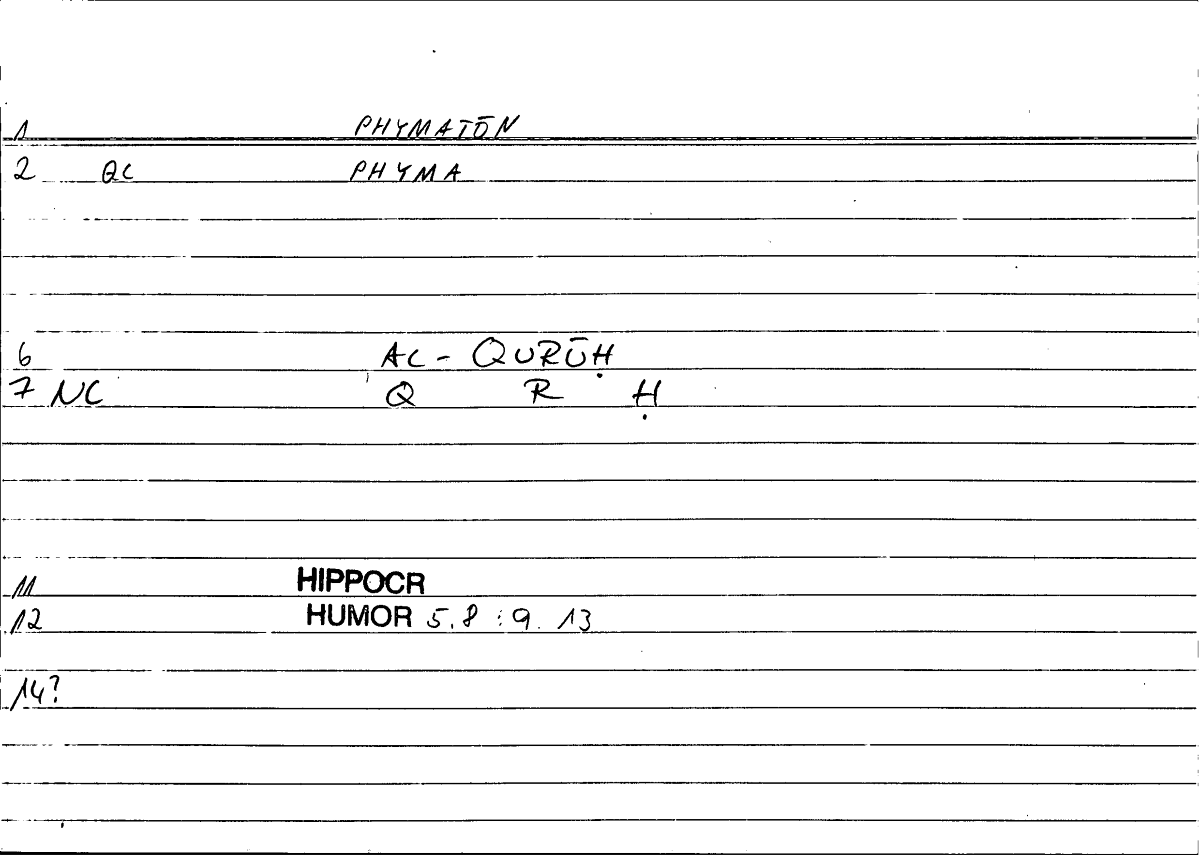 1 PHYMATŌN
2 QC PHYMA
6 AC - QURŪḤ
7 NC Q R Ḥ
11 HIPPOCR
12 HUMOR 5.8 : 9. 13
14?